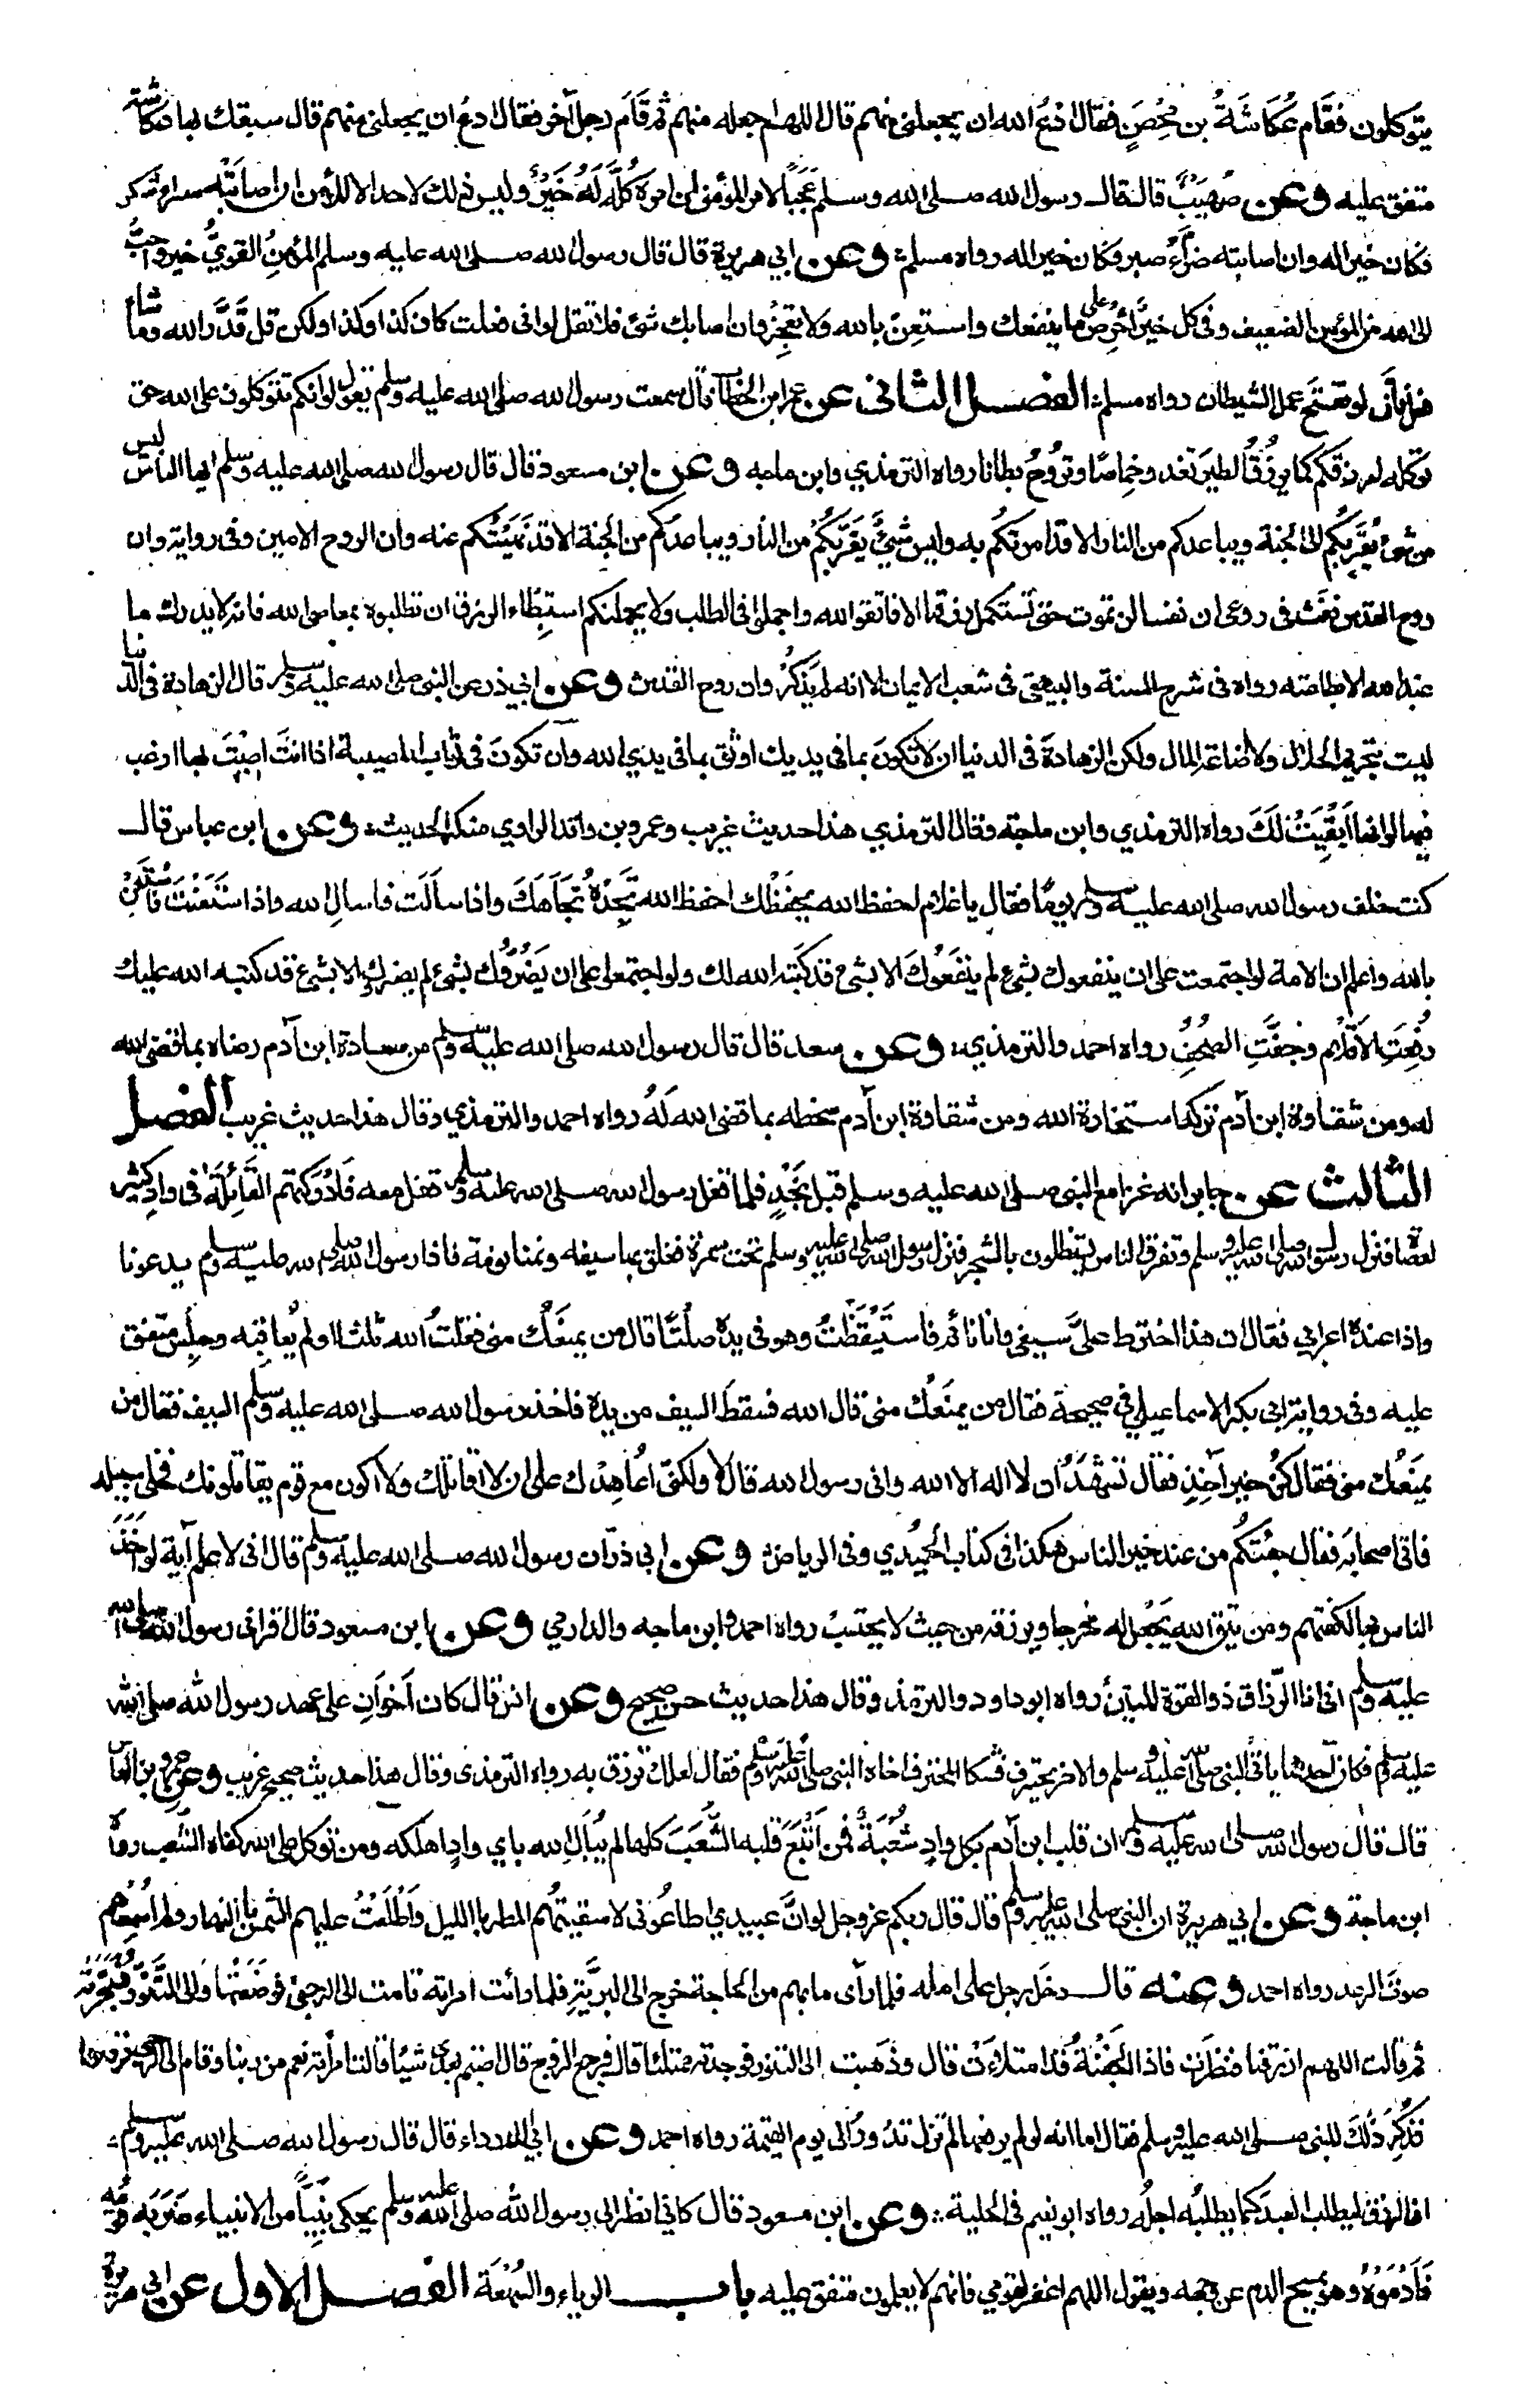 يتوكلون فقام عُكَاشَةُ بن مُحْصَنٍ فقال ادْعُ الله ان يجعلني منهم قال اللهم اجعله منهم ثم قَامَ رجل آخر فقال ادعُ ان يجعلني منهم قال سبقك بها عكاشة
متفق عليه وعن صُهَيْبٌ قال قال رسول الله صلى الله وسلم عَجَبًا لامر المؤمن ان امره كُلَّه لَهُ خَيْرٌ وليس ذلك لاحد الا للمؤمن ان اصابَتْه سراء شكر
فكان خيرا له وان اصابته ضراءُ صبر فكان خيرا له رواه مسلم وعن ابي هريرة قال قال رسول الله صلى الله عليه وسلم المؤمن القويُّ خير واحبُّ
الى الله من المؤمن الضعيف وفي كل خيرٌ احْرِصْ على ما ينفعك واستعِنْ بالله ولا تَعجِزْ وان اصابك شئ فلا تقل لو اني فعلت كان كذا وكذا ولكن قل قَدَّر الله وما شاء
فعل فاَن لو تفتح عمل الشيطان رواه مسلم الفصل الثاني عن عمر ابن الخطاب قال سمعت رسول الله صلى الله عليه وسلم يقول لو انكم تتوكلون على الله حق
توكله لرزقكم كما يرزُقُ الطير تغدو خِماصًا وتَرُوحُ بطانا رواه الترمذي وابن ماجه وعن ابن مسعود قال قال رسول الله صلى الله عليه وسلم ايها الناس ليس
من شئ يُقَرِّبُكُم الى الجنة ويباعدكم من النار الا قد امرتكُم به وليس شئٌ يُقَرِّبُكُم من النار ويباعدُكم من الجنة الا قد نَهَيْتُكم عنه وان الروح الامين وفي رواية وان
روح القدس نفَث في روعي ان نفسا لن تموت حتى تَستكمل رزقها الا فاتقوا الله واجملوا في الطلب ولا يحملنكم استبطاء الرزق ان تطلبوه بمعاصي الله فانه لا يدرك ما
عند الله الا بطاعته رواه في شرح السنة والبيهقي في شعب الايمان الا انه لم يَذكُرْ وان روح القدس وعن ابي ذر عن النبي صلى الله عليه وسلم قال الزهادة في الدنيا
ليست بتحريم الحلال ولا اضاعة المال ولكن الزهادةَ في الدنيا ان لا تَكونَ بما في يديك اوثق بما في يدي الله وان تكونَ في ثواب المصيبة اذا انتَ اصبْتَ بها ارغب
فيها لو انها اُبقِيَتْ لَكَ رواه الترمذي وابن ماجة وقال الترمذي هذا حديث غريب وعمرو بن واقد الراوي منكر الحديث وعن ابن عباس قال
كنت خلف رسول الله صلى الله عليه وسلم يومًا فقال يا غلام احفظ الله يحفَظْك احفظ الله تَجِدْهُ تُجَاهَكَ واذا ساَلَت فاسالِ الله واذا استَعَنْتَ فاسْتَعِنْ
بالله واعلم ان الامة لو اجتمعت على ان ينفعوك بشئ لم ينفَعُوكَ الا بشئ قد كَتَبَه الله لك ولو اجتمعوا على ان يَضُرُّوْك بشئ لم يضروك الا بشئ قد كتبه الله عليك
رُفِعَتِ الاقلامُ وجَفَّتِ الصُحُفُ رواه احمد والترمذي وعن سعد قال قال رسول الله صلى الله عليه وسلم من سعادة ابن آدم رضاه بما قضى الله
له ومن شقاوة ابن آدم تركه استخارة الله ومن شقاوة ابن آدم سخطه بما قضى الله لَهُ رواه احمد والترمذي وقال هذا حديث غريب الفصل
الثالث عن جابر انه غزا مع النبي صلى الله عليه وسلم قبل نَجْدٍ فلما قفل رسول الله صلى الله عليه وسلم قفل معه فاَدْرَكَتهم القَائِلَةُ في وادٍ كثير
العضاه فنزل رسول الله صلى الله عليه وسلم وتفرق الناس يستظلون بالشجر فنزل رسول الله صلى الله عليه وسلم تحت سمرة فعلق بها سيفه ونمنا نومة فاذا رسول الله صلى الله عليه وسلم يدعونا
واذا عنده اعرابي فقال ان هذا اخترط عليَّ سيفي وانا نائم فاستَيْقَظْتُ وهو في يده صَلْتًا قال من يمنعُك مني فقلتُ الله ثلثا ولم يُعاقبْه وجلس متفق
عليه وفي رواية ابي بكر الاسماعيلي في صحيحه فقال من يمنَعُك مني قال الله فسقطَ السيف من يده فاخذ رسول الله صلى الله عليه وسلم السيف فقال من
يمنَعُك مني فقال كُن خير آخذٍ فقال تشهَدُ ان لا اله الا الله واني رسول الله قال لا ولكنّي اعُاهِدُك على ان لا اقاتلك ولا اكون مع قوم يقاتلونك فخلى سبيله
فاتى اصحابَه فقال جئتُكم من عند خير الناس هكذا في كتاب الحُمَيْدي وفي الرياض وعن ابي ذرّ ان رسول الله صلى الله عليه وسلم قال اني لاعلم آية لو اَخَذَ
الناس بها لكفتهم ومن يتق الله يَجْعل له مخرجا ويرزقه من حيث لا يحتسبُ رواه احمد وابن ماجه والدارمي وعن ابن مسعود قال اقراني رسول الله صلى الله
عليه وسلم اني انا الرزاق ذو القوة المتين رواه ابو داود والترمذي وقال هذا حديث حسن صحيح وعن انس قال كان اَخَوانِ على عهد رسول الله صلى الله
عليه وسلم فكان احدهما ياتي النبي صلى الله عليه وسلم والاخر يحترف فشكا المحترف اخاه النبي صلى الله عليه وسلم فقال لعلك تُرزق به رواه الترمذي وقال هذا حديث صحيح غريب وعن عمرو بن العاص
قال قال رسول الله صلى الله عليه وسلم ان قلب ابن آدم بكل وادٍ شُعْبَةٌ فمن اَتْبَعَ قلبه الشُّعَبَ كلها لم يُبالِ الله باي وادٍ اهلكه ومن توكل على الله كفاه الشُعب رواه
ابن ماجة وعن ابي هريرة ان النبي صلى الله عليه وسلم قال قال ربكم عز وجل لو انَّ عبيدي اطاعُوني لاسقيتهُم المطر بالليل واَطْلَعْتُ عليهم الشمس بالنهار ولم اُسْمِعهم
صوتَ الرعد رواه احمد وعنه قال دخَل رجل على اهله فلما رأى ما بهم من الحاجة خرج الى البريّةِ فلما رأت امراته قامت الى الرحى فوضَعَتْها والى التَنّور فسَجَرَتْه
ثم قالت اللهم ارزقنا فنظرَت فاذا الجَفْنَةُ قد امتلأتْ قال وذَهَبت الى التنور فوجدته ممتلئا قال فرجع الزوج قال اصبتم بعدي شيئًا قالت امرأته نعم من ربنا وقام الى الرحى
فذُكِرَ ذلكَ للنبي صلى الله عليه وسلم فقال اما انه لو لم يرفعها لم تزل تدُورُ الى يوم القيمة رواه احمد وعن ابي الدرداء قال قال رسول الله صلى الله عليه وسلم
ان الرزق ليطلب العبدَ كما يطلبُه اجلُه رواه ابو نعيم في الحلية وعن ابن مسعود قال كاني انظر الى رسول الله صلى الله عليه وسلم يحكي نَبِيًّا من الانبياء ضَرَبَه قومُه
فَاَدْمَوْهُ وهو يمسح الدم عن وجهه ويقول اللهم اغفر لقومي فانهم لا يعلمون متفق عليه باب الرياء والسُمْعَة الفصل الاول عن ابي هريرة